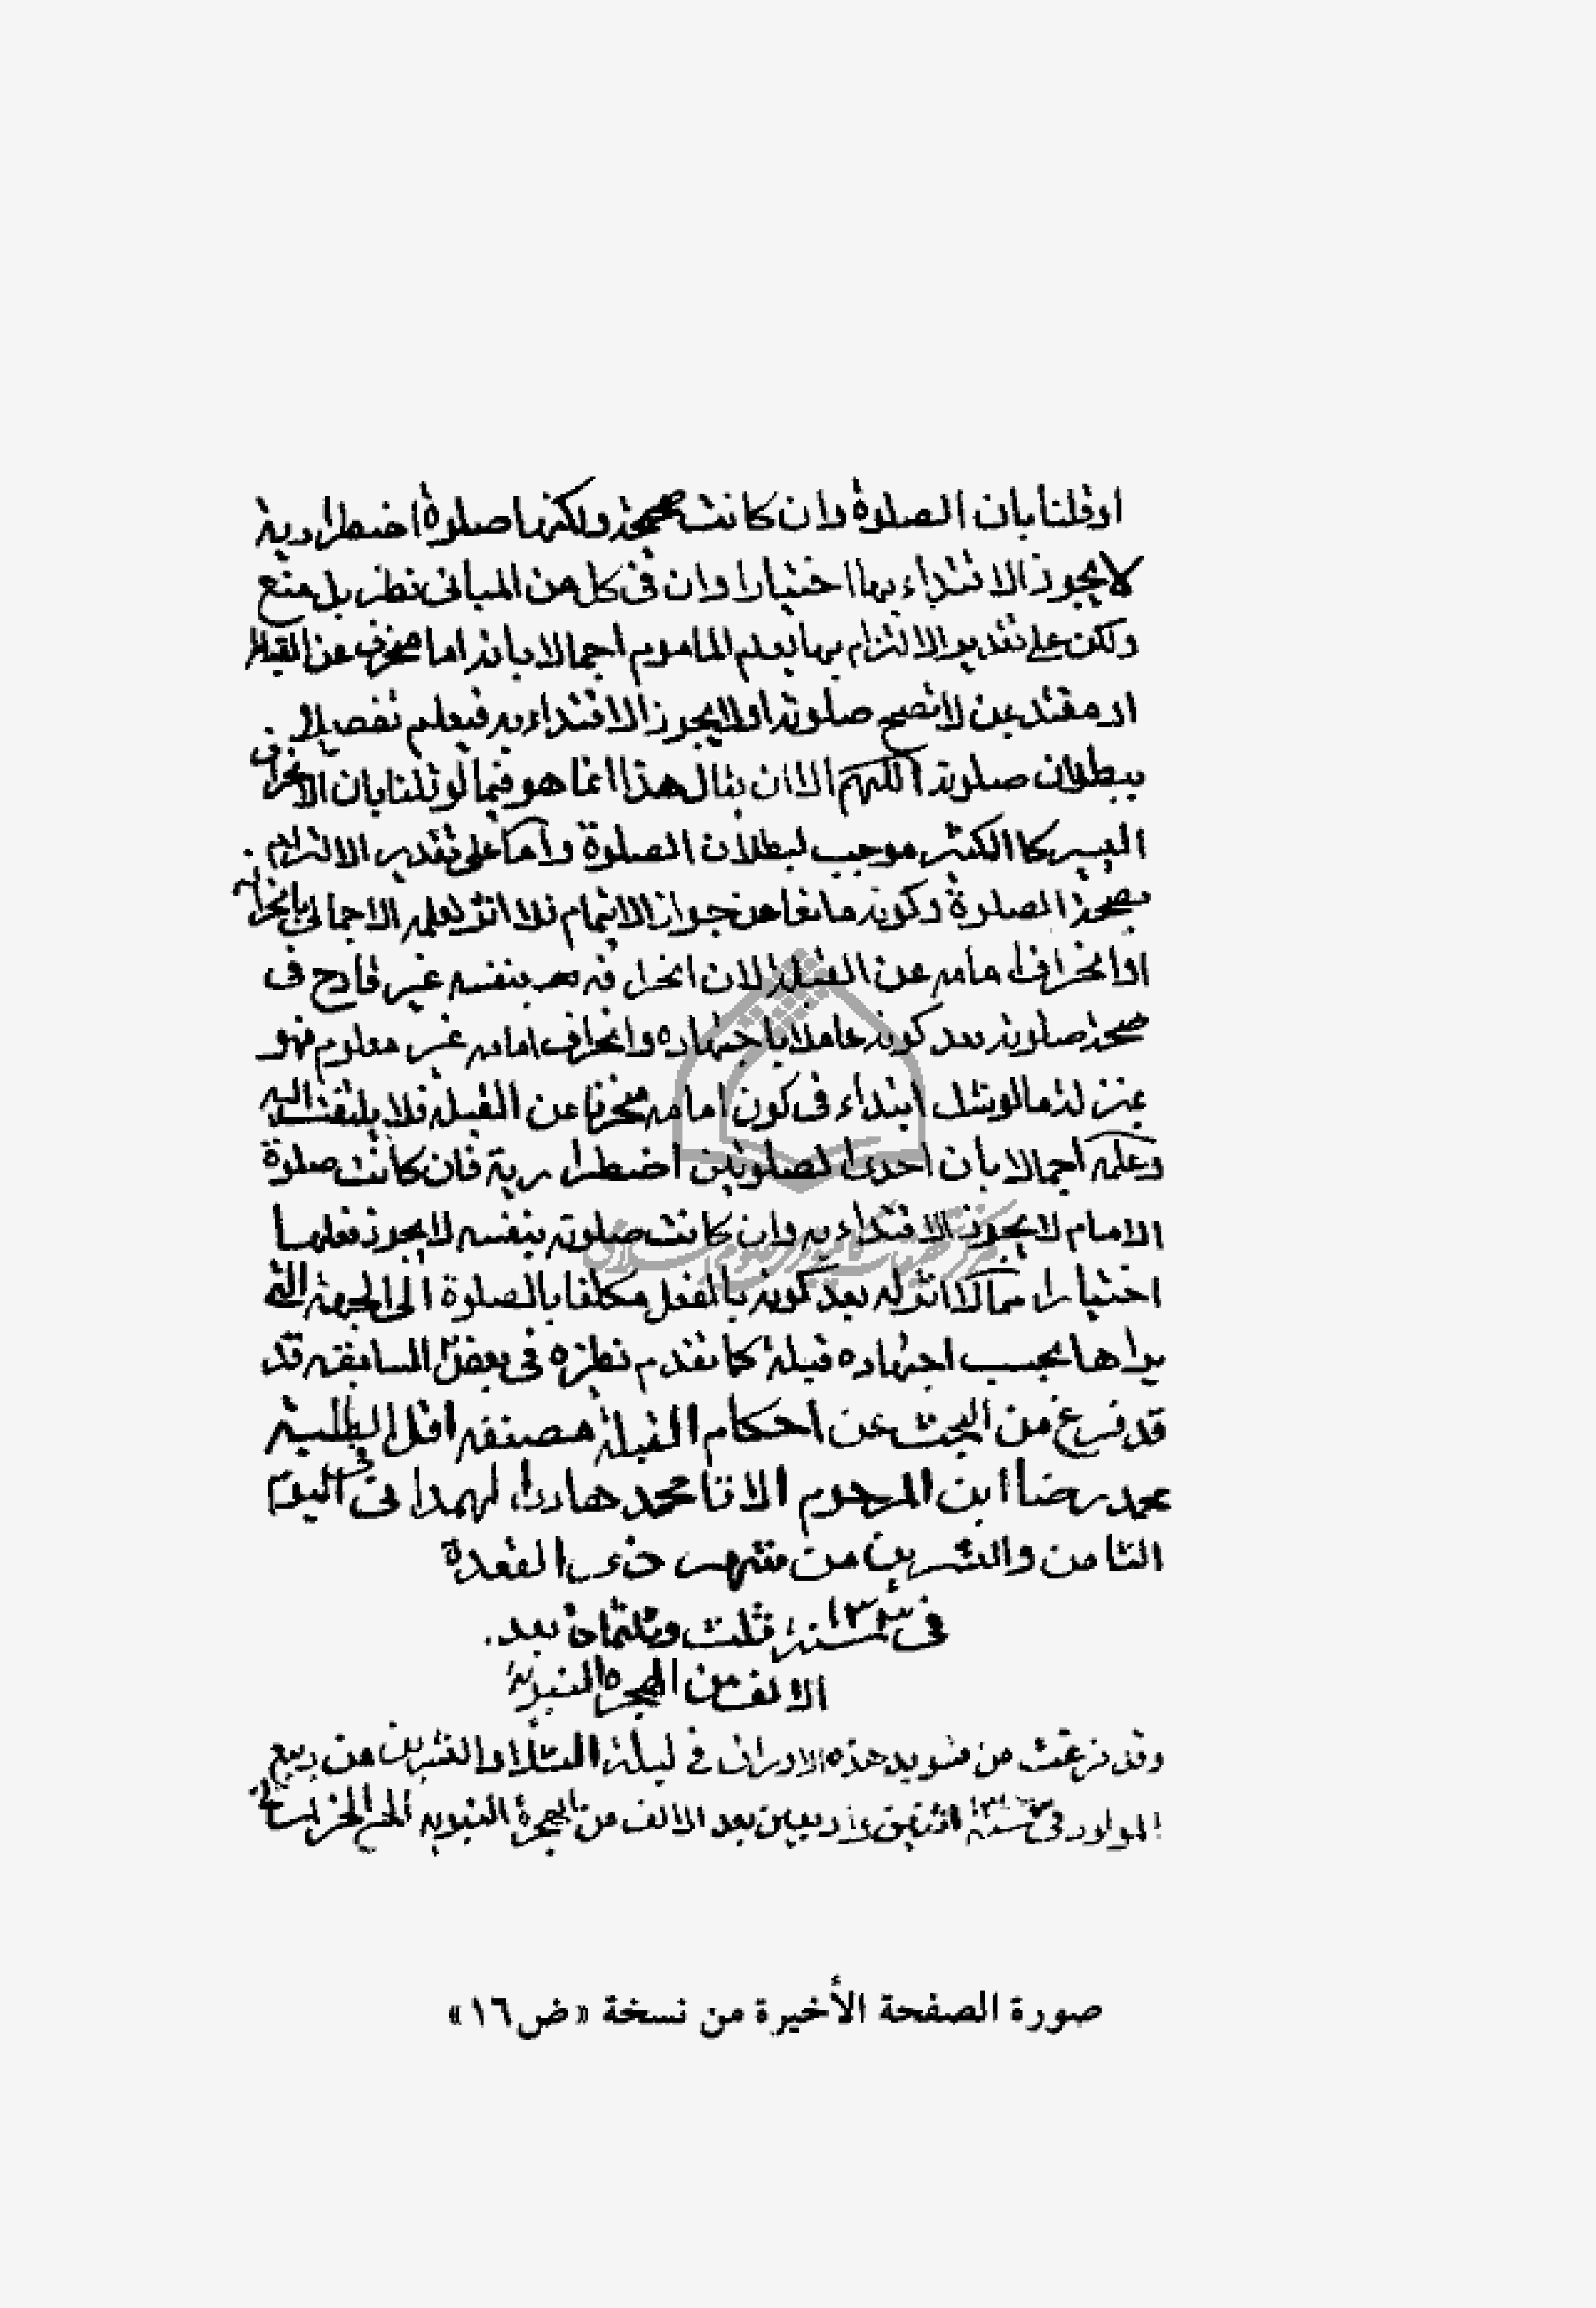 او قلنا بان الصلوة وان كانت صحيحة ولكنها صلوة اضطرارية
لا يجوز الاقتداء بها اختيارا وان فى كل من المبانى نظر بل منع
ولكن على تقدير الالتزام بها يعلم الماموم اجمالا بانه اما منحرف عن القبلة
او مقتد بمن لا تصح صلوته او لا يجوز الاقتداء به فيعلم تفصيلا
ببطلان صلوته اللهم الا ان يقال هذا انما هو فيما لو قلنا بان الانحراف
اليسير كالكثير موجب لبطلان الصلوة واما على تقدير الالتزام
بصحة الصلوة وكونه مانعا من جواز الايتمام فلا اثر لعلمه الاجمالى بانحرافه
او انحراف امامه عن القبلة لان انحرافه بنفسه غير قادح فى
صحة صلوته بعد كونه عاملا باجتهاده وانحراف امامه غير معلوم فهو
بمنزلة ما لو شك ابتداء فى كون امامه منحرفا عن القبلة فلا يلتفت اليه
وعلمه اجمالا بان احدى الصلوتين اضطرارية فان كانت صلوة
الامام لا يجوز الاقتداء به وان كانت صلوته بنفسه لا يجوز فعلها
اختيارا مما لا اثر له بعد كونه بالفعل مكلفا بالصلوة الى الجهة التى
يراها بحسب اجتهاده قبلة كما تقدم نظيره فى بعض السابقة قد
قد فرغ من البحث عن احكام القبلة مصنفه اقل الطلبة
محمد رضا ابن المرحوم الاقا محمد هادى الهمدانى فى اليوم
الثامن والعشرين من شهر ذى القعدة
فى سنة ١٣٠٣ ثلث وثلثمائة بعد
الالف من الهجرة النبوية
وقد فرغت من تسويد هذه الاوراق فى ليلة الثلاثا والعشرين من ربيع
المولود فى سنة اثنين واربعين بعد الالف من الهجرة النبوية
صورة الصفحة الأخيرة من نسخة «ض١٦»